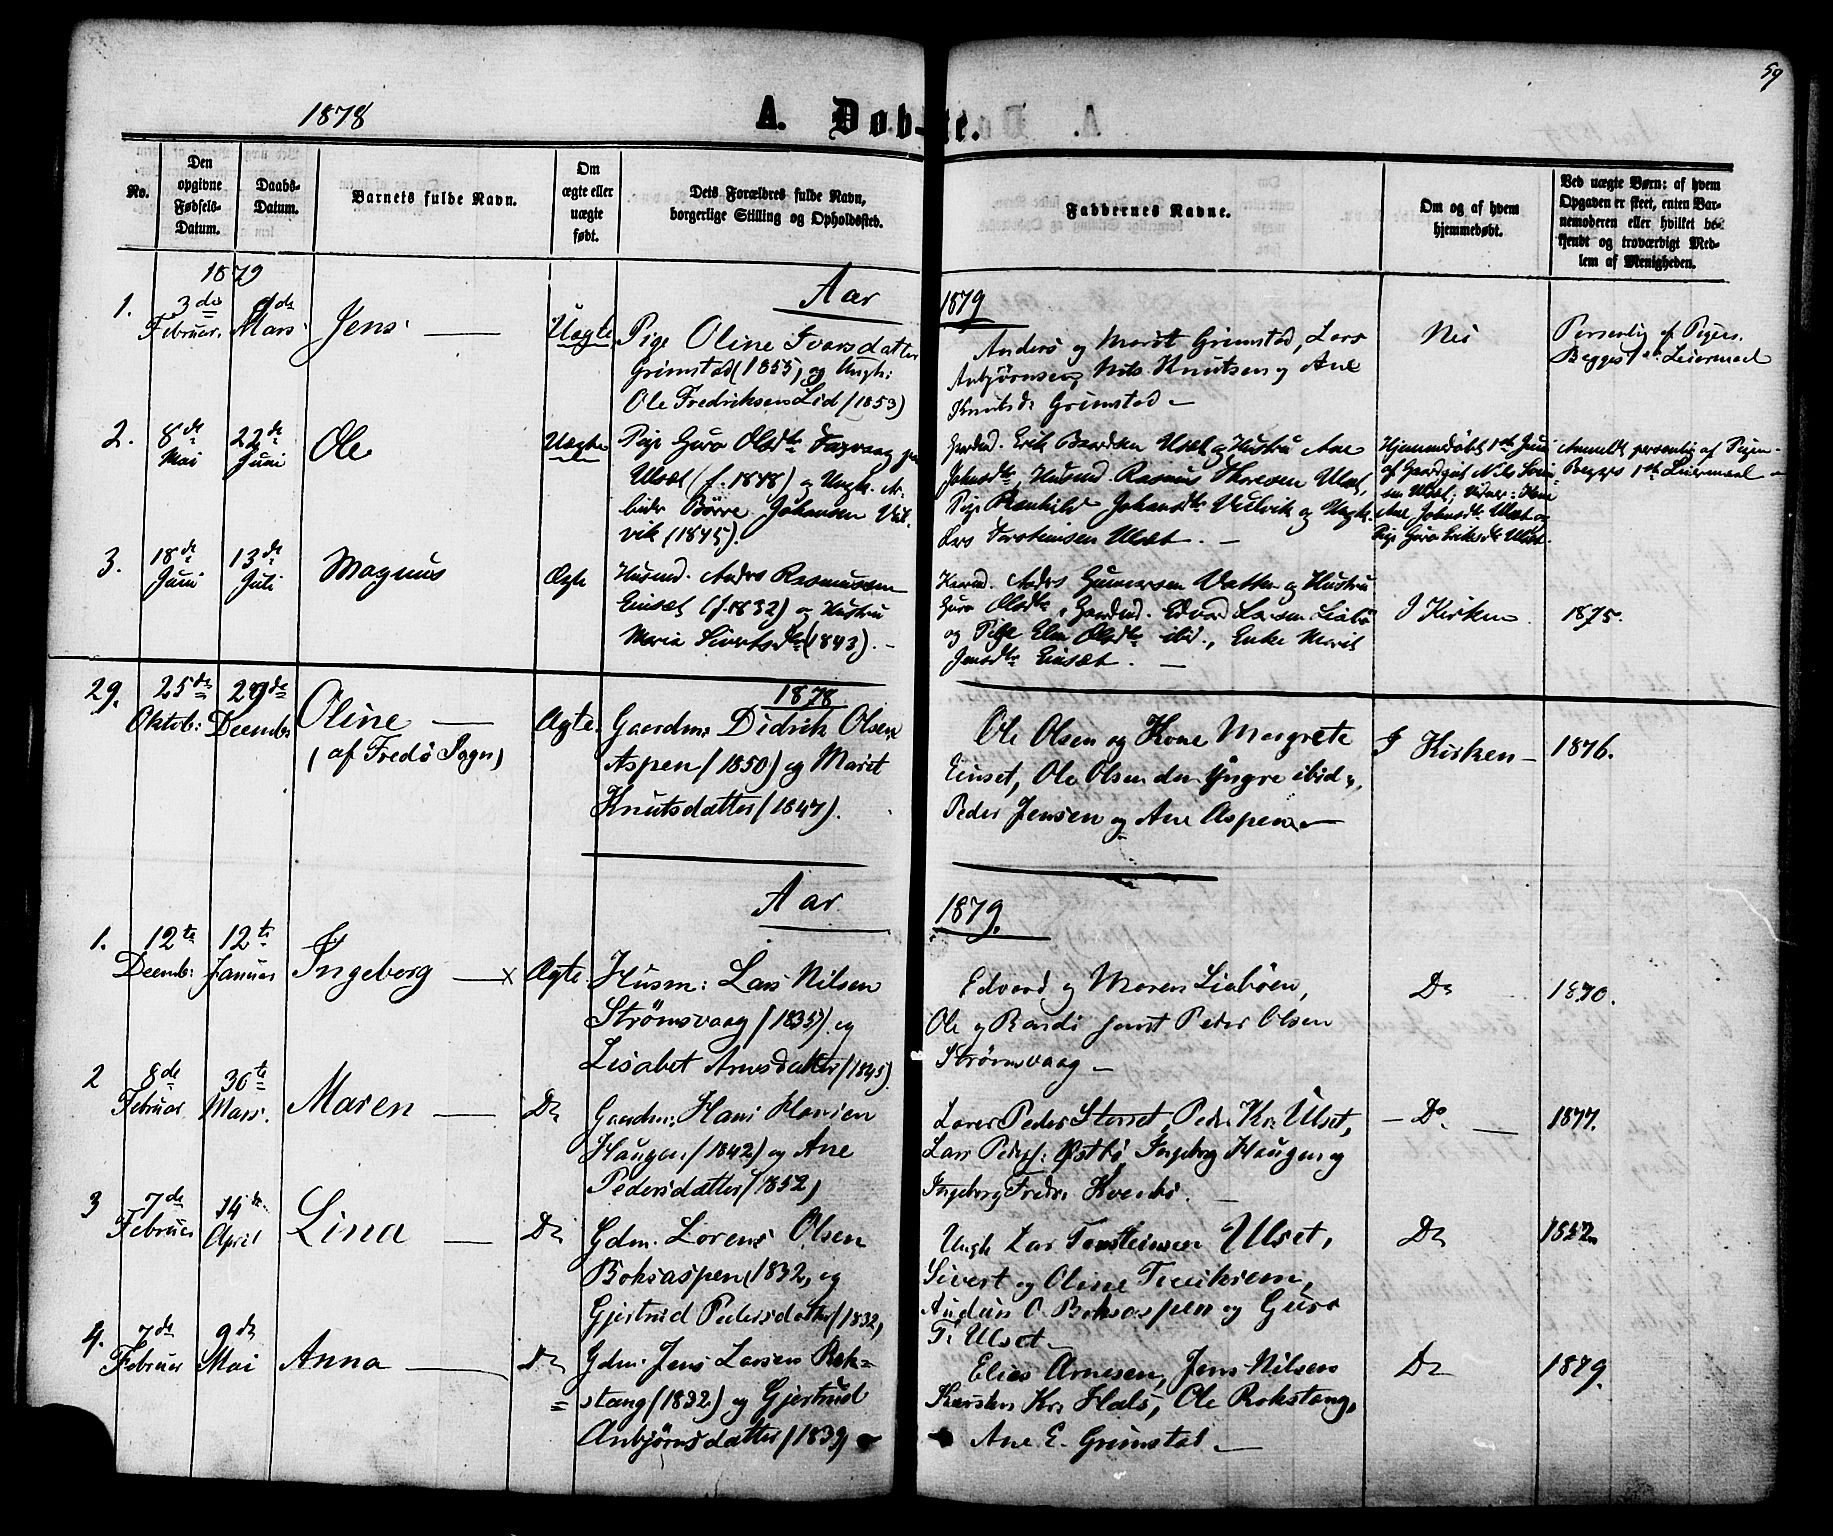 59
1878
A. Døb-te.
No.
Den opgivne Fødsels-Datum.
Daabs-Datum.
Barnets fulde Navn.
Om ægte eller uægte født.
Dets Forældres fulde Navn, borgerlige Stilling og Opholdssted.
Faddernes Navne.
Om og af hvem hjemmedøbt.
Ved uægte Børn: af hvem Opgaven er skeet, enten Barnemoderen eller hvilket bekjendt og troværdigt Medlem af Menigheden.
1879
Aar
1879
1. 3die Februar. 9de Mars Jens Uægte
Pige Oline Ivarsdatter
Grimstad (1855) og Ungk:
Ole Fredriksen Lid (1853)
Anders og Marit Grimstad, Lars
Anbjørnsen, Nils Knutsen og Ane
Knutsdr Grimstad
Nei
Personlig af Pigen.
Begges 1ste Leiermaal
2. 8de Mai 22de Juni Ole Uægte
Pige Guro Olsdtr
Ulset (f. 1848) og Ungk. Ar-
beider Børre Johansen Vul-
vik (1845).
Erik Baardsen Ulset og Hustru Ane
Johnsdtr, Husmd. Rasmus Ulset,
Pige Ranhild Johansdtr Vulvik og Ungk.
Lars Torsteinsen Ulset.
Hjemmedøbt 1ste Juni
af Nils
Ulset; Vidner: Kone
Ane Johnsdtr Ulset og
Pige Guro Eriksdtr Ulset.
Anmeldt personlig af Pigen
Begges 1ste Leiermaal
3. 18de Juni 13de Juli Magnus Ægte
Husmd. Anders Rasmussen
Einset (f. 1832) og Hustru
Maria Sivertsdtr (1843).
Anders Gunnarsen Vatten og Hustru
Guro Olsdtr, Gaardmd. Edvard Larsen Liabø
og Pige Elen Olsdtr ibid., Enke Marit
Jensdtr Einset.
I Kirken
1875.
29. 25de Oktob: 29de Decemb: Oline Ægte.
(af Fredø Sogn)
1878
Gaardm: Didrik Olsen
Aspen (1850) og Marit
Knutsdatter (1847).
Ole Olsen og Kone Margrete
Einset, Ole Olsen den Yngre ibid.,
Peder Jensen og Ane Aspen
I Kirken
1876.
Aar
1879.
1. 12te Decemb: 12te Januar Ingeborg x Ægte
Husm: Lars Nilsen
Strømsvaag (1835) og
Lisabet Arnesdatter (1845).
Edvard og Maren Liabøen,
Ole og Randi samt Peder Olsen
Strømsvaag
Do
1870.
2 8de Februar 30te Mars. Maren Do
Gaardm: Hans Hansen
Haugen (1842) og Ane
Pedersdatter (1852)
Peder Storset, Peder Kr. Ulset,
Lars Peders: Østbø, Ingeborg Haugen og
Ingeborg Fredr.
Do
1877.
3 7de Februar 14de April Lina Do
Gdm. Lorens Olsen
Boksaspen (1832, og
Gjertrud Pedersdatter (1832,
Ungk Lars Torsteinsen Ulset,
Sivert og Oline
Audun O. Boksaspen og Guro
T. Ulset
Do
4. 7de Februar 9de Mai Anna Do
Gdm. Jens Larsen Rok-
stang (1832) og Gjertrud
Anbjørnsdatter (1839
Elias Arnesen, Jens Nilsen
Karsten Kr. Hals, Ole Rokstang,
Ane E. Grimstad
Do
1879.